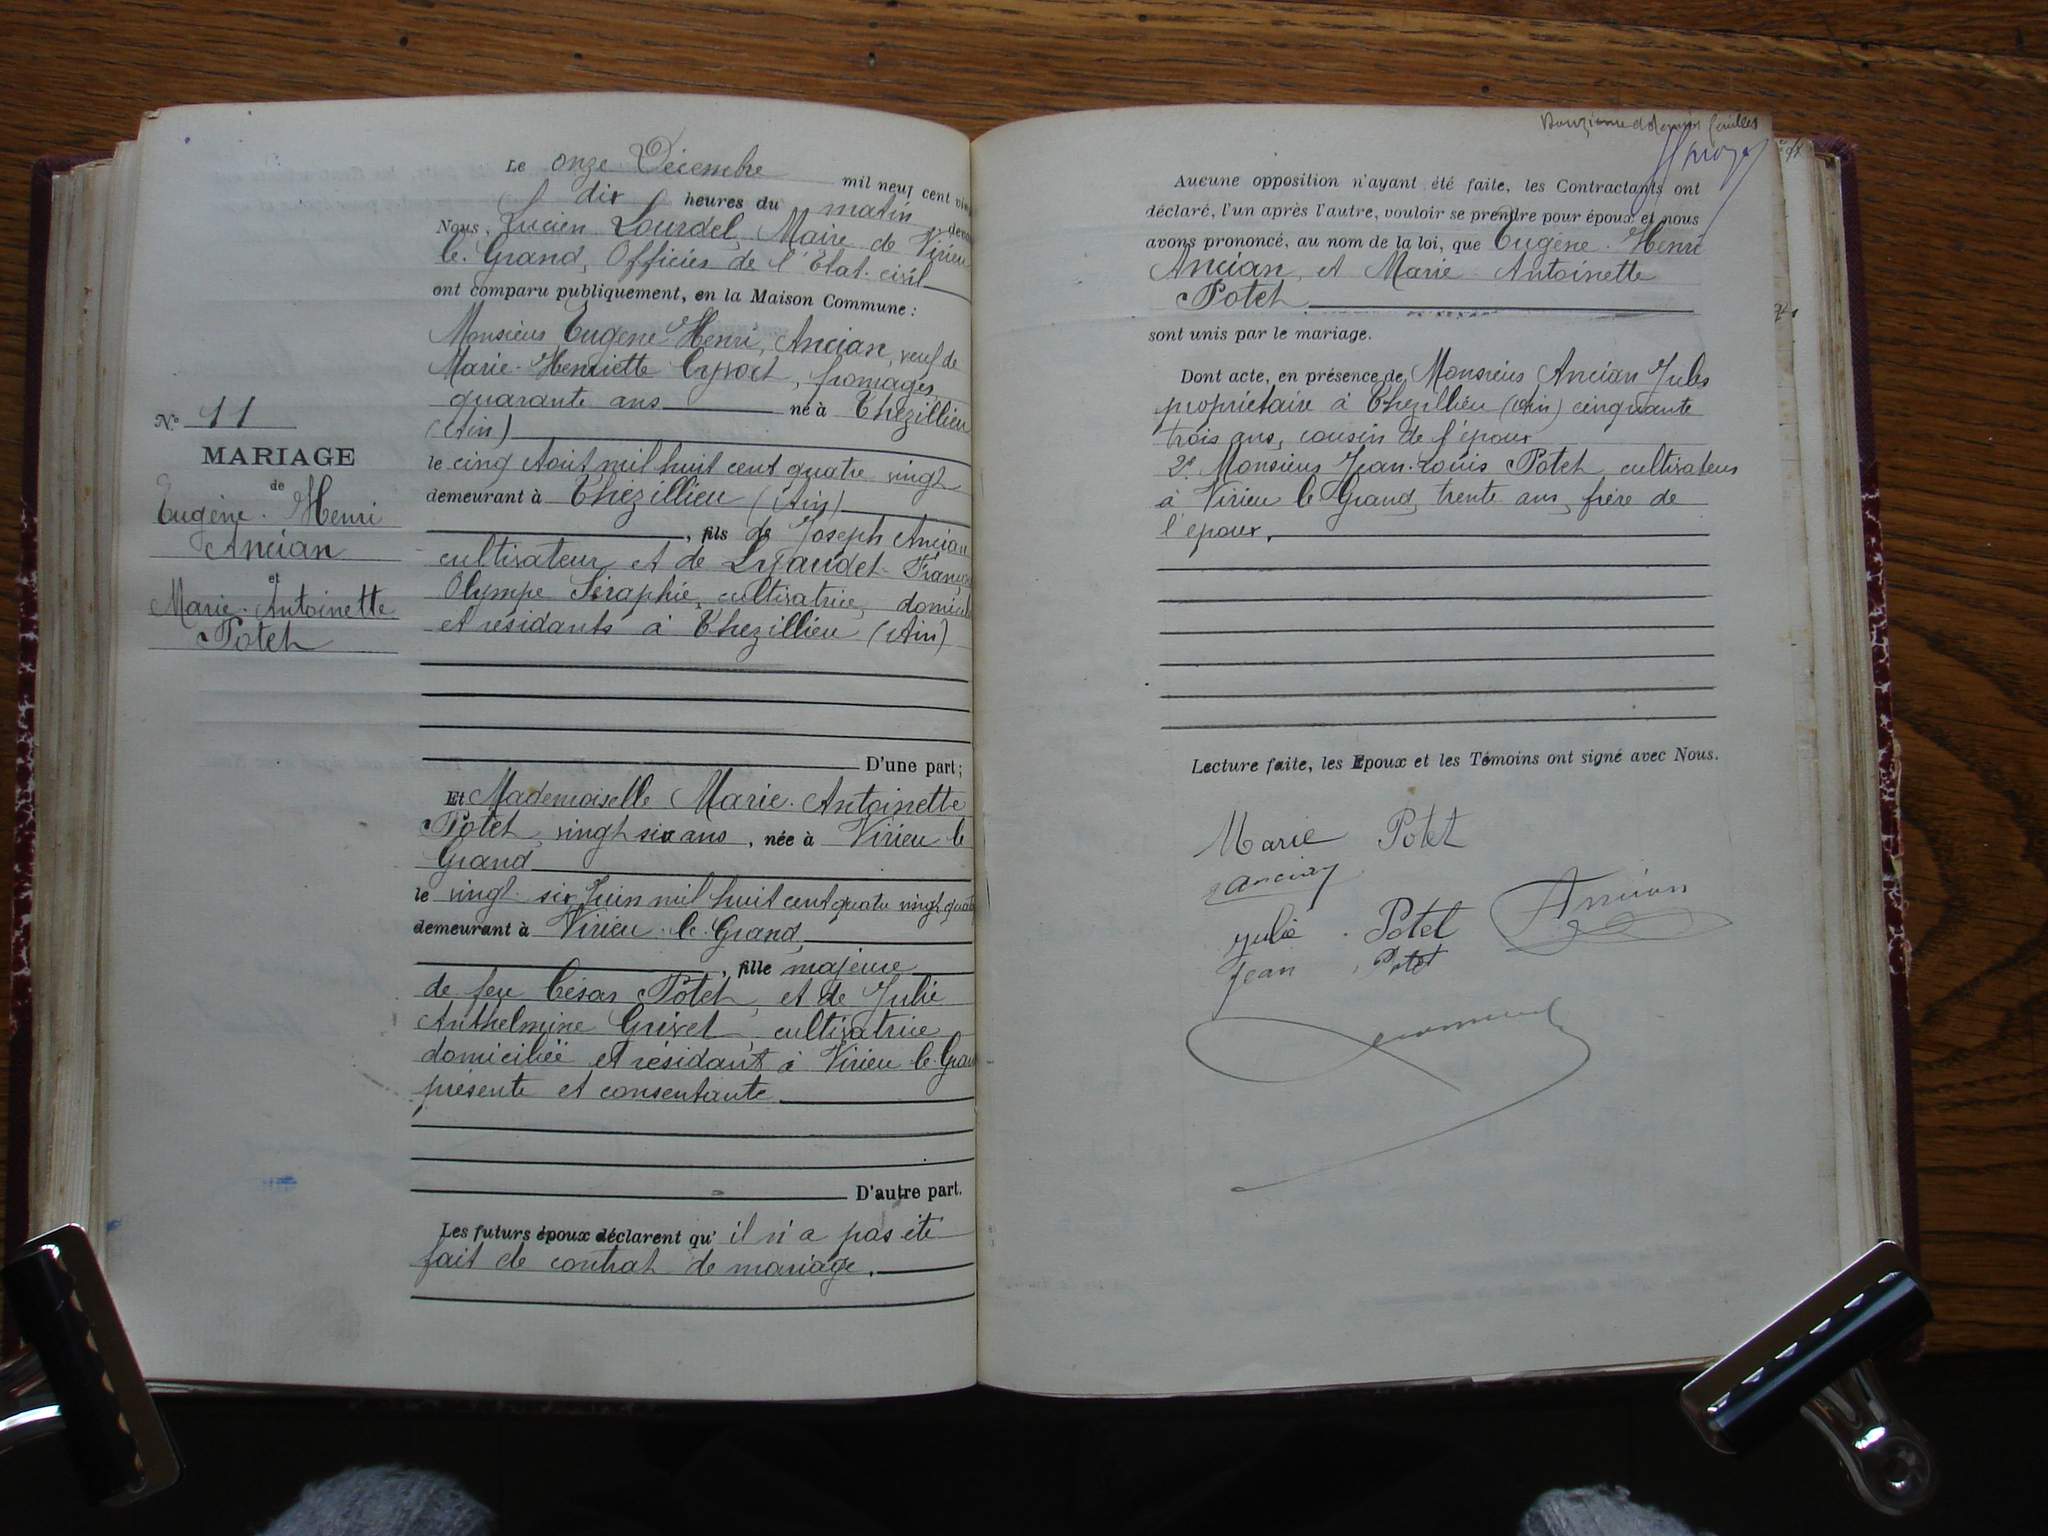 N° 11
MARIAGE
de
Eugène-Henri
Ancian
et
Marie-Antoinette
Potet
Le onze Décembre mil neuf cent
dix heures du matin
Nous, Lucien Lourdel, Maire de Virieu
le-Grand, Officier de l'Etat-civil
ont comparu publiquement, en la Maison Commune :
Monsieur Eugène Henri, Ancian, veuf de
Marie-Henriette, fromager,
quarante ans né à Thézillieu
(Ain)
le cinq Aout mil huit cent quatre vingt
demeurant à Thézillieu (Ain)
, fils de Joseph Ancian
cultivateur et de Lyaudet
Olympe Séraphie, cultivatrice,
et résidants à Thezillieu (Ain)
D'une part ;
Et Mademoiselle Marie-Antoinette
Potet, vingt six ans, née à Virieu le
Grand
le vingt-six Juin mil huit cent quatre vingt
demeurant à Virieu-le-Grand,
, fille majeure
de feu César Potet, et de Julie
Anthelmine Grivet, cultivatrice
domiciliée et résidant à Virieu-le
présente et consentante
D'autre part.
Les futurs époux déclarent qu' il n'a pas été
fait de contrat de mariage.
Aucune opposition n'ayant été faite, les Contractants ont
déclaré, l'un après l'autre, vouloir se prendre pour époux et nous
avons prononcé, au nom de la loi, que Eugène-Henri
Ancian, et Marie-Antoinette
Potet
sont unis par le mariage.
Dont acte, en présence de Monsieur Ancian Jules
propriétaire à Thezillieu (Ain) cinquante
trois ans, cousin de l'époux
2° Monsieur Jean-Louis Potet cultivateur
à Virieu le Grand, trente ans, frère de
l'époux.
Lecture faite, les Epoux et les Témoins ont signé avec Nous.
Marie Potet
Ancian
Julie Potet Ancian
Jean Potet